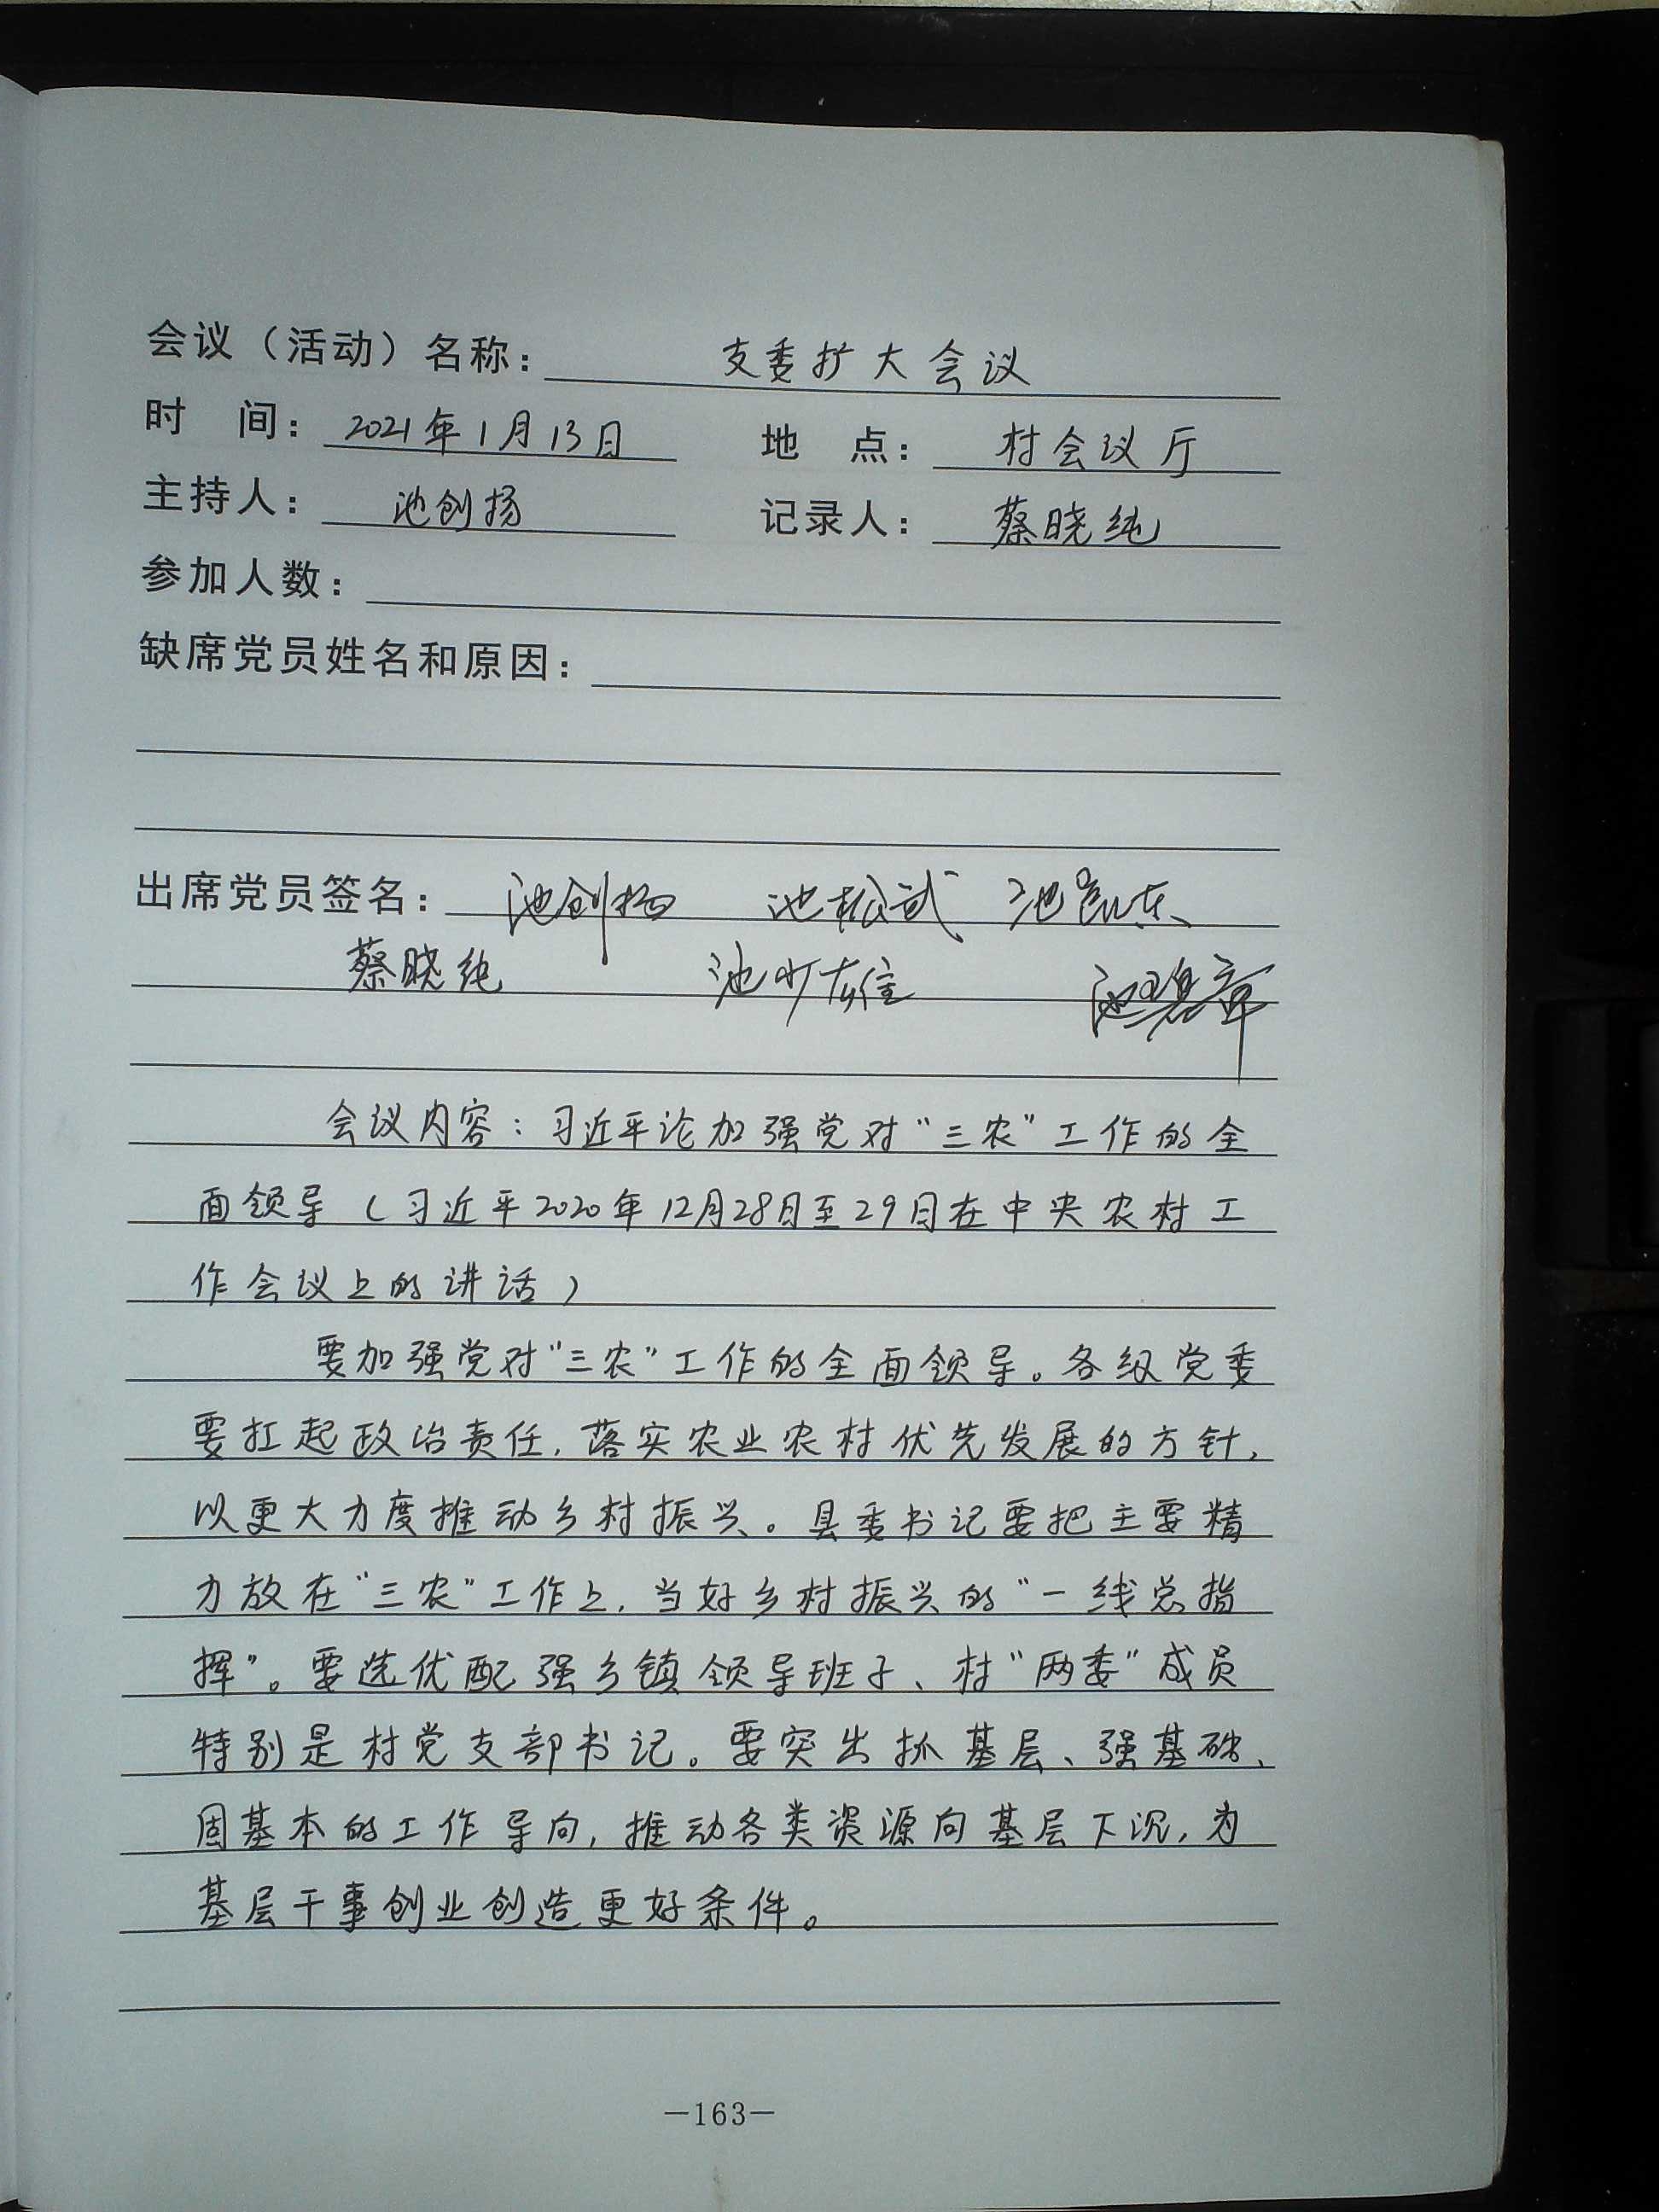 会议（活动）名称：支委扩大会议
时 间：2021年1月13日 地 点：村会议厅
主持人：池创扬 记录人：蔡晓纯
参加人数：
缺席党员姓名和原因：
出席党员签名：池创扬 池松武 池
蔡晓纯 池 池碧章
会议内容：习近平论加强党对“三农”工作的全
面领导（习近平2020年12月28日至29日在中央农村工
作会议上的讲话）
要加强党对“三农”工作的全面领导。各级党委
要扛起政治责任，落实农业农村优先发展的方针，
以更大力度推动乡村振兴。县委书记要把主要精
力放在“三农”工作上，当好乡村振兴的“一线总指
挥”。要选优配强乡镇领导班子、村“两委”成员
特别是村党支部书记。要突出抓基层、强基础、
固基本的工作导向，推动各类资源向基层下沉，为
基层干事创业创造更好条件。
—163—